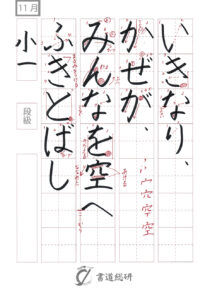 11月
いきなり、
かぜが、
みんなを空へ
ふきとばし
小一
段級
書道総研